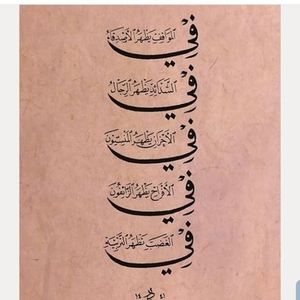 في المواقف يظهر الأصدقاء
في الشدائد يظهر الرجال
في الأحزان يظهر المنسيون
في الأفراح يظهر الزائفون
في الغضب تظهر التربية